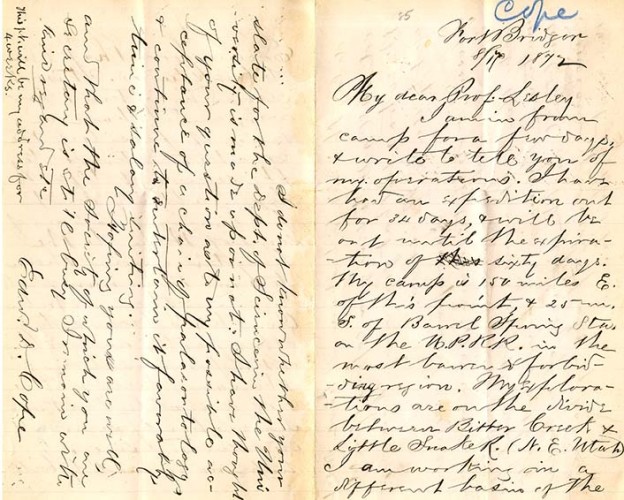 Cope
Fort Bridger
8/17 1872
My dear Prof. Lesley
I am in from
camp for a few days,
& write to tell you of
my operations. I have
had an expedition out
for 34 days, & will be
out until the expira-
tion of sixty days.
My camp is 150 miles E.
of this point & 25 m.
S. of Barrel Spring Sta.
on the U.P.R.R. in the
most barren & forbid-
ding region. My explora-
tions are on the divide
between Bitter Creek &
Little Snake R. (N.E. Utah)
I am working in a
different basin of the
I do not know whether your
slate for the Dept. of Science in the Uni-
versity is made up or not. I have thought
of your question as to my possible ac-
ceptance of a chair of palaeontology
& continue to entertain it favorably
time & salary suiting.
Hoping you are well,
and that the Society of which you are
Secretary is still busy I remain with
kind regards etc
Edw. D. Cope
This ph will be my address for
4 weeks.